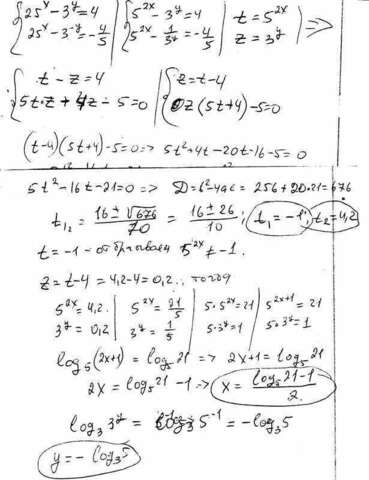 { 25^x - 3^y = 4 | { 5^{2x} - 3^y = 4 | t = 5^{2x}
25^x - 3^{-y} = -4/5 | 5^{2x} - 1/3^y = -4/5 | z = 3^y =>
{ t - z = 4 | { z = t - 4
5t·z + 4z - 5 = 0 | z(5t+4) - 5 = 0
(t-4)(5t+4) - 5 = 0 => 5t² + 4t - 20t - 16 - 5 = 0
5t² - 16t - 21 = 0 => D = b² - 4ac = 256 + 20·21 = 676
t₁₂ = (16 ± √676)/10 = (16 ± 26)/10; t₁ = -1; t₂ = 4,2
t = -1 - отбрасываем 5^{2x} ≠ -1.
z = t - 4 = 4,2 - 4 = 0,2. тогда
5^{2x} = 4,2. | 5^{2x} = 21/5 | 5·5^{2x} = 21 | 5^{2x+1} = 21
3^y = 0,2 | 3^y = 1/5 | 5·3^y = 1 | 5·3^y = 1
log₅(2x+1) = log₅21 => 2x+1 = log₅21
2x = log₅21 - 1 => x = (log₅21 - 1)/2
log₃ 3^y = log₃ 5^{-1} = -log₃5
y = -log₃5